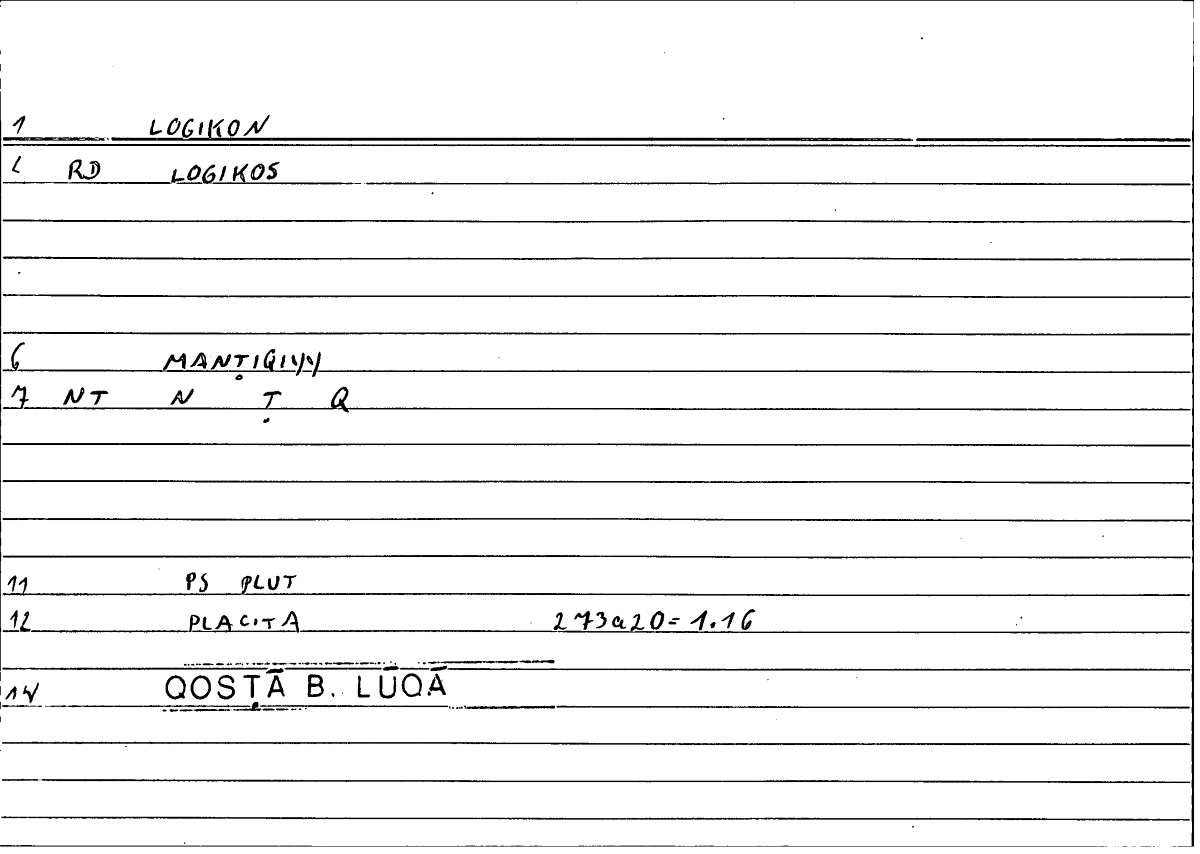 1 LOGIKON
2 RD LOGIKOS
6 MANṬIQIYY
7 NT N Ṭ Q
11 PS PLUT
12 PLACITA 273a20=1.16
14 QOSṬĀ B. LŪQĀ